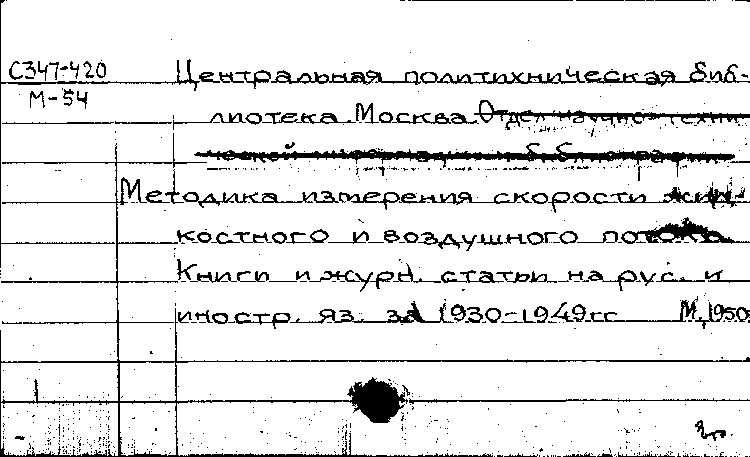 С347-420
М-54
Центральная политихническая биб-
лиотека. Москва. Отдел научно-техни
ческой информации и библиографии
Методика измерения скорости жид-
костного и воздушного потока
Книги и журн. статьи на рус. и
иностр. яз. за 1930-1949гг М, 1950